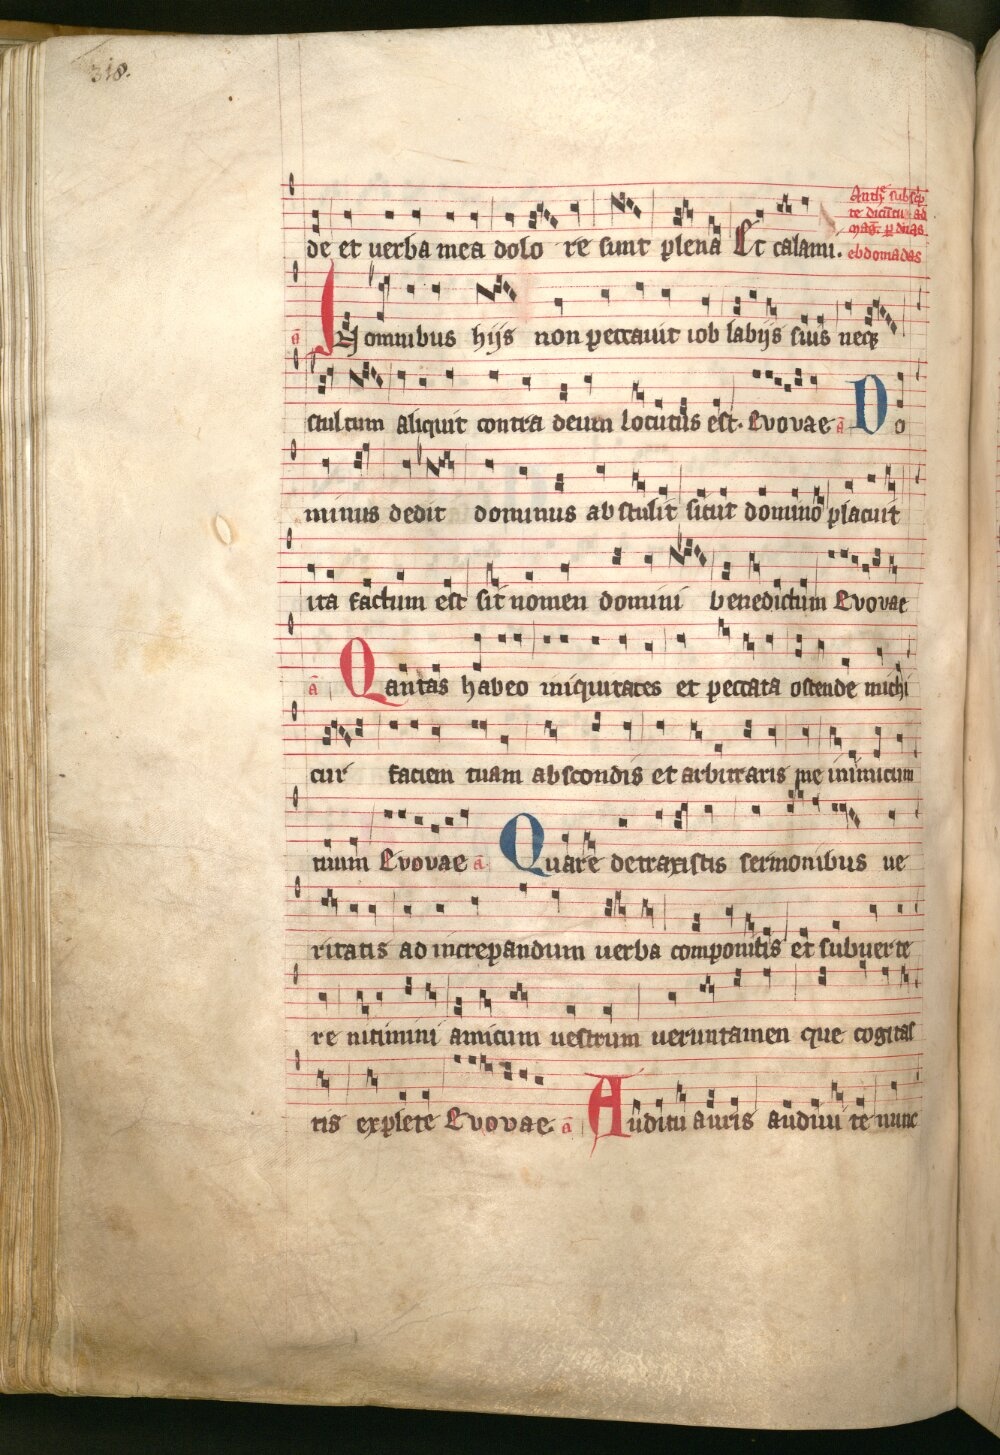 318.
de et verba mea dolo re sunt plena Et calami.
Anthe subscp
te dicu͞tu͞ ad
mag͞. p͞ duas
ebdomadas
a͞ In omnibus hijs non peccauit iob labijs suis necz
stultum aliquit contra deum locutus est. Evovae a͞ Do
minus dedit dominus abstulit sicut domino placuit
ita factum est sit nomen domini benedictum Evovae
a͞ Qantas habeo iniquitates et peccata ostende michi
cur faciem tuam abscondis et arbitraris me inimicum
tuum Evovae a͞ Quare detraxistis sermonibus ue
ritatis ad increpandum uerba componitis et subuerte
re nitimini amicum uestrum ueruntamen que cogitas
tis explete Evovae. a͞ Auditu auris audiui te nunc